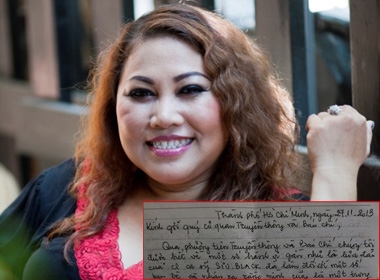 Thành phố Hồ Chí Minh, ngày 27.11.2013
Kính gởi quý cơ quan Truyền thông và Báo chí,
Qua phương tiện Truyền thông và Báo chí chúng tôi
được biết về một số hành vi gần như là lừa đảo
của cô ca sỹ SIU BLACK đã làm đối với một số